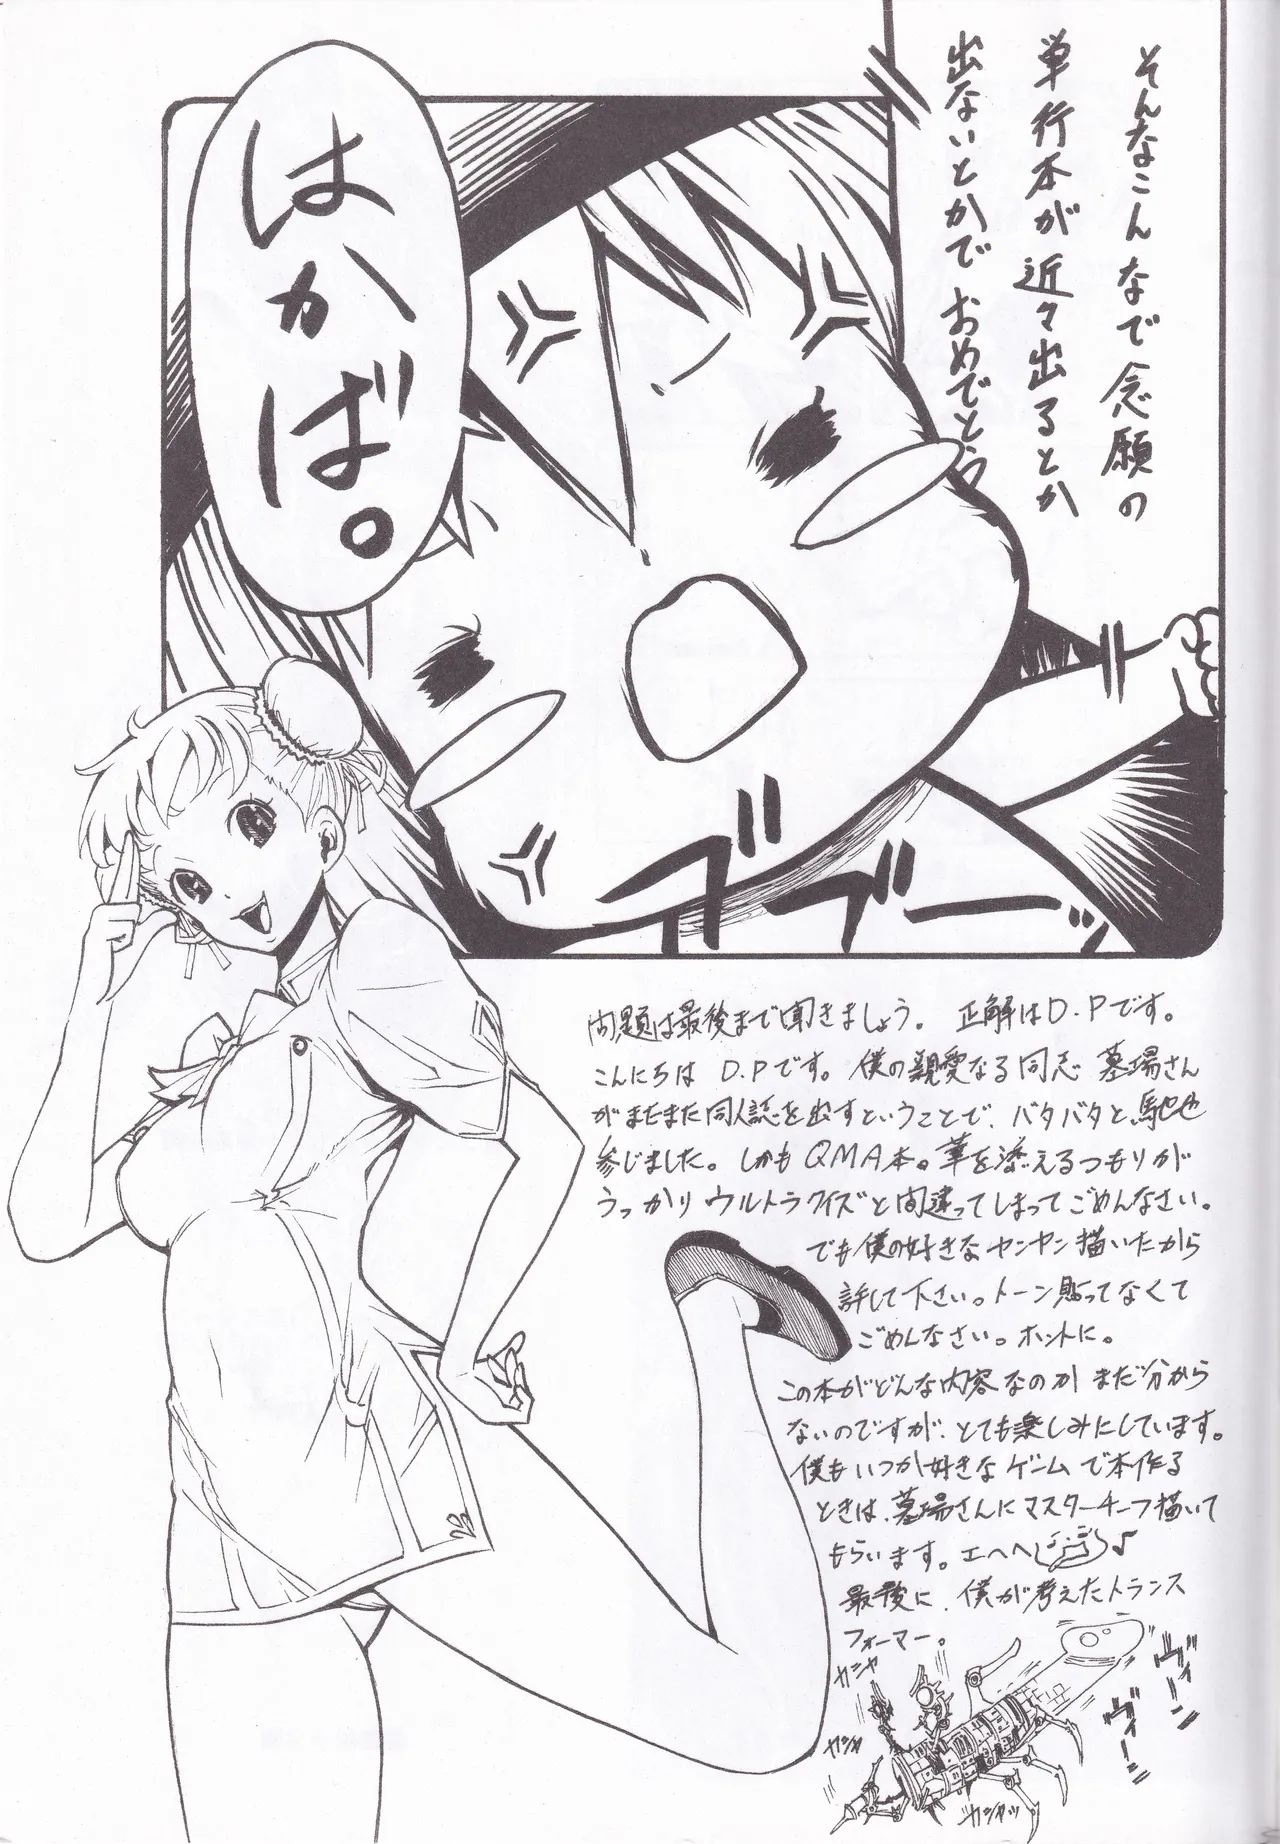 そんなこんなで念願の
単行本が近々出るとか
出ないとかでおめでとう
はかば。
デブーッ
問題は最後まで聞きましょう。正解はD.Pです。
こんにちは D.Pです。僕の親愛なる同志 墓場さん
がまたまた同人誌を出すということで、バタバタと馳せ
参じました。しかもQMA本。華を添えるつもりが
うっかりウルトラクイズと間違ってしまってごめんなさい。
でも僕の好きなヤンヤン描いたから
許して下さい。トーン貼ってなくて
ごめんなさい。ホントに。
この本がどんな内容なのかまだ分から
ないのですが、とても楽しみにしています。
僕もいつか好きなゲームで本作る
ときは、墓場さんにマスターチーフ描いて
もらいます。エヘヘ♪
最後に、僕が考えたトランス
フォーマー。
ガシャ
ガシャ
ガシャッ
ヴィーン
ヴィーン